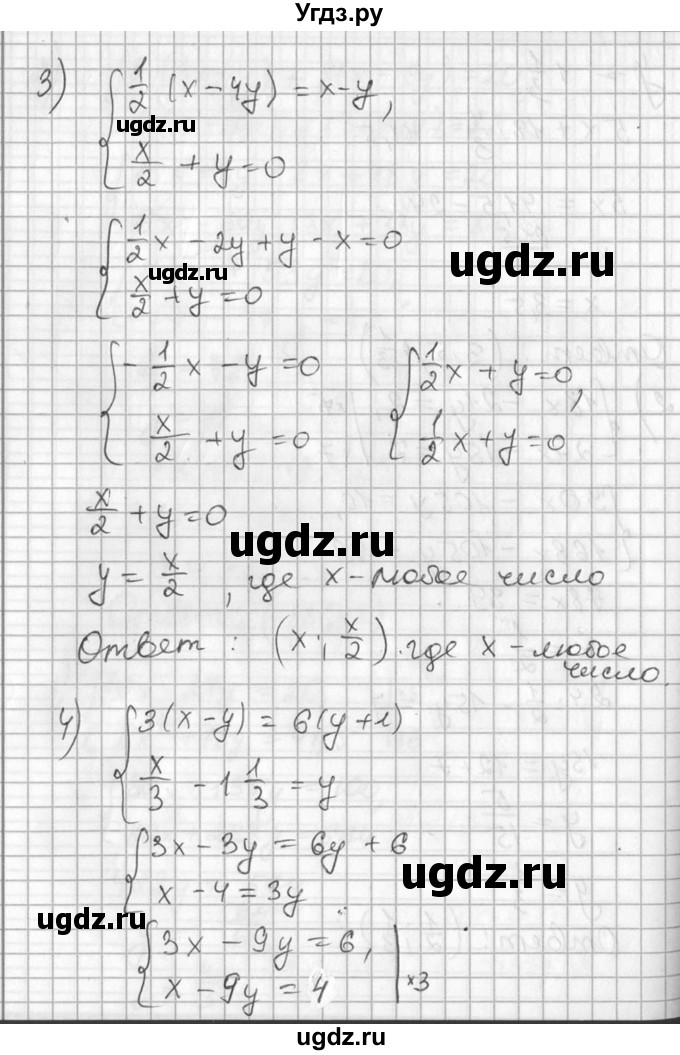 Угдз.ру
3) { 1/2 (x - 4y) = x - y,
ugdz.ru
x/2 + y = 0
{ 1/2 x - 2y + y - x = 0
ugdz.ru
ugdz.ru
x/2 + y = 0
{ - 1/2 x - y = 0 { 1/2 x + y = 0,
x/2 + y = 0 1/2 x + y = 0
x/2 + y = 0
ugdz.ru
y = x/2, где x - любое число
Ответ: (x; x/2). где x - любое
число.
4) { 3(x - y) = 6(y + 1)
x/3 - 1 1/3 = y
{ 3x - 3y = 6y + 6
ugdz.ru
x - 4 = 3y
ugdz.ru
{ 3x - 9y = 6, |
x - 9y = 4 | ×3
ugdz.ru